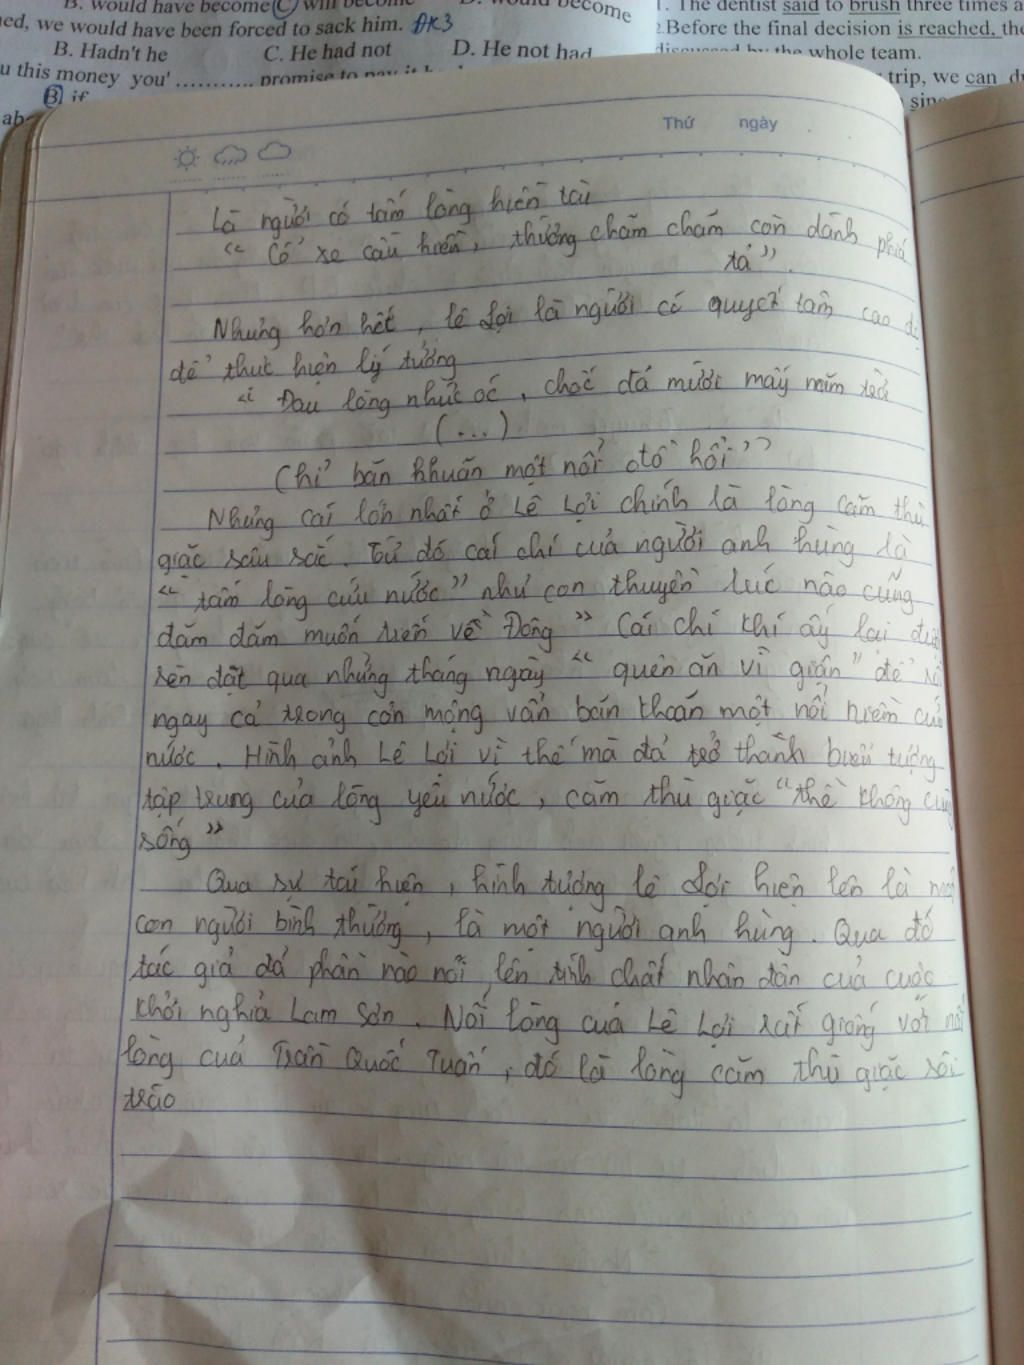 B. would have become C. will become D. would become
ed, we would have been forced to sack him. ĐK3
B. Hadn't he C. He had not D. He not had
u this money you' ........... promise to pay it
B. if
ab
1. The dentist said to brush three times a
2. Before the final decision is reached, the
discussed by the whole team.
trip, we can
Thứ ngày
Là người có tấm lòng hiền tài
“ Cỗ xe cầu hiền, thường chăm chắm còn dành phía
tả”.
Nhưng hơn hết, lê Lợi là người có quyết tâm cao
để thưc hiện lý tưởng
“ Đau lòng nhức óc, chốc đã mười mấy năm trời
(...)
Chỉ băn khuăn một nỗi đồ hồi”
Nhưng cái lớn nhất ở Lê Lợi chính là lòng căm thù
giặc sâu sắc. Từ đó cái chí của người anh hùng là
“ tấm lòng cứu nước” như con thuyền lúc nào cũng
đăm đăm muốn tiến về Đông ” Cái chí khí ấy lại
rèn dặt qua những tháng ngày “ quên ăn vì giận” để
ngay cả trong cơn mộng vẫn bán khoán một nỗi niềm cứu
nước. Hình ảnh Lê Lợi vì thế mà đã trở thành biểu tượng
tập trung của lòng yêu nước, căm thù giặc “thề không cùng
sống”
Qua sự tái hiện, hình tượng lê Lợi hiện lên là một
con người bình thường, là một người anh hùng. Qua đó
tác giả đã phần nào nói lên tính chất nhân dân của cuộc
khởi nghĩa Lam Sơn. Nỗi lòng của Lê Lợi rất giống với nỗi
lòng cuả Trần Quốc Tuấn, đó là lòng căm thù giặc sôi
trào